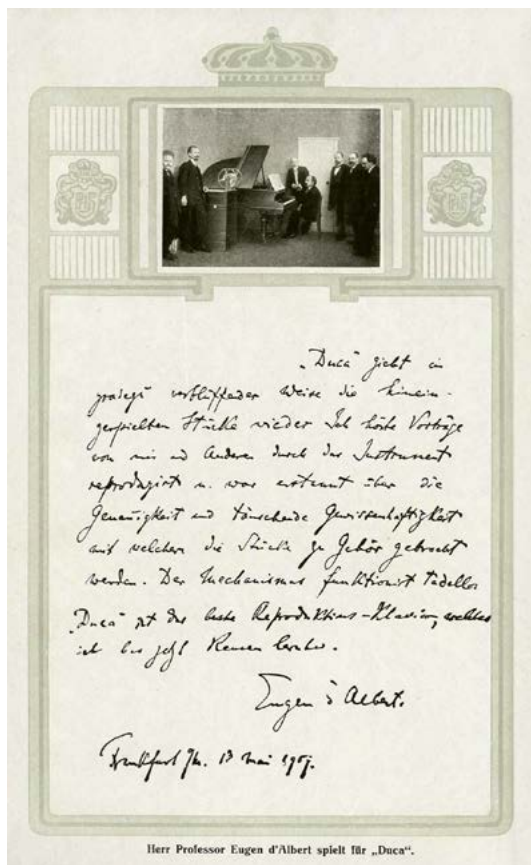 „Duca" giebt in
geradezu verblüffender Weise die hinein-
gespielten Stücke wieder Ich hörte Vorträge
von mir und Anderen durch das Instrument
reproduzirt u. war erstaunt über die
Genauigkeit und täuschende Gewissenhaftigkeit
mit welchem die Stücke zu Gehör gebracht
werden. Der Mechanismus funktionirt tadellos
„Duca" ist das beste Reproduktions-Klavier, welches
ich bis jetzt kennen lernte.
Eugen d'Albert.
Frankfurt 13 Mai
Herr Professor Eugen d'Albert spielt für „Duca".